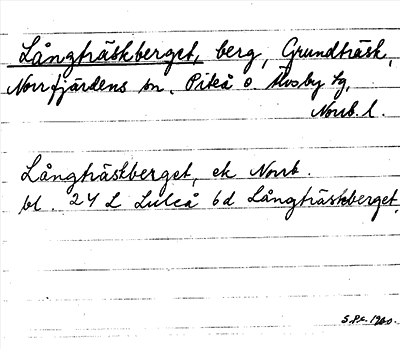 Långträskberget, berg, Grundträsk,
Norrfjärdens sn. Piteå o. Älvsby tg,
Norrb. l.
Långträskberget, ek Norrb.
bl. 24 L Luleå 6d Långträskberget.